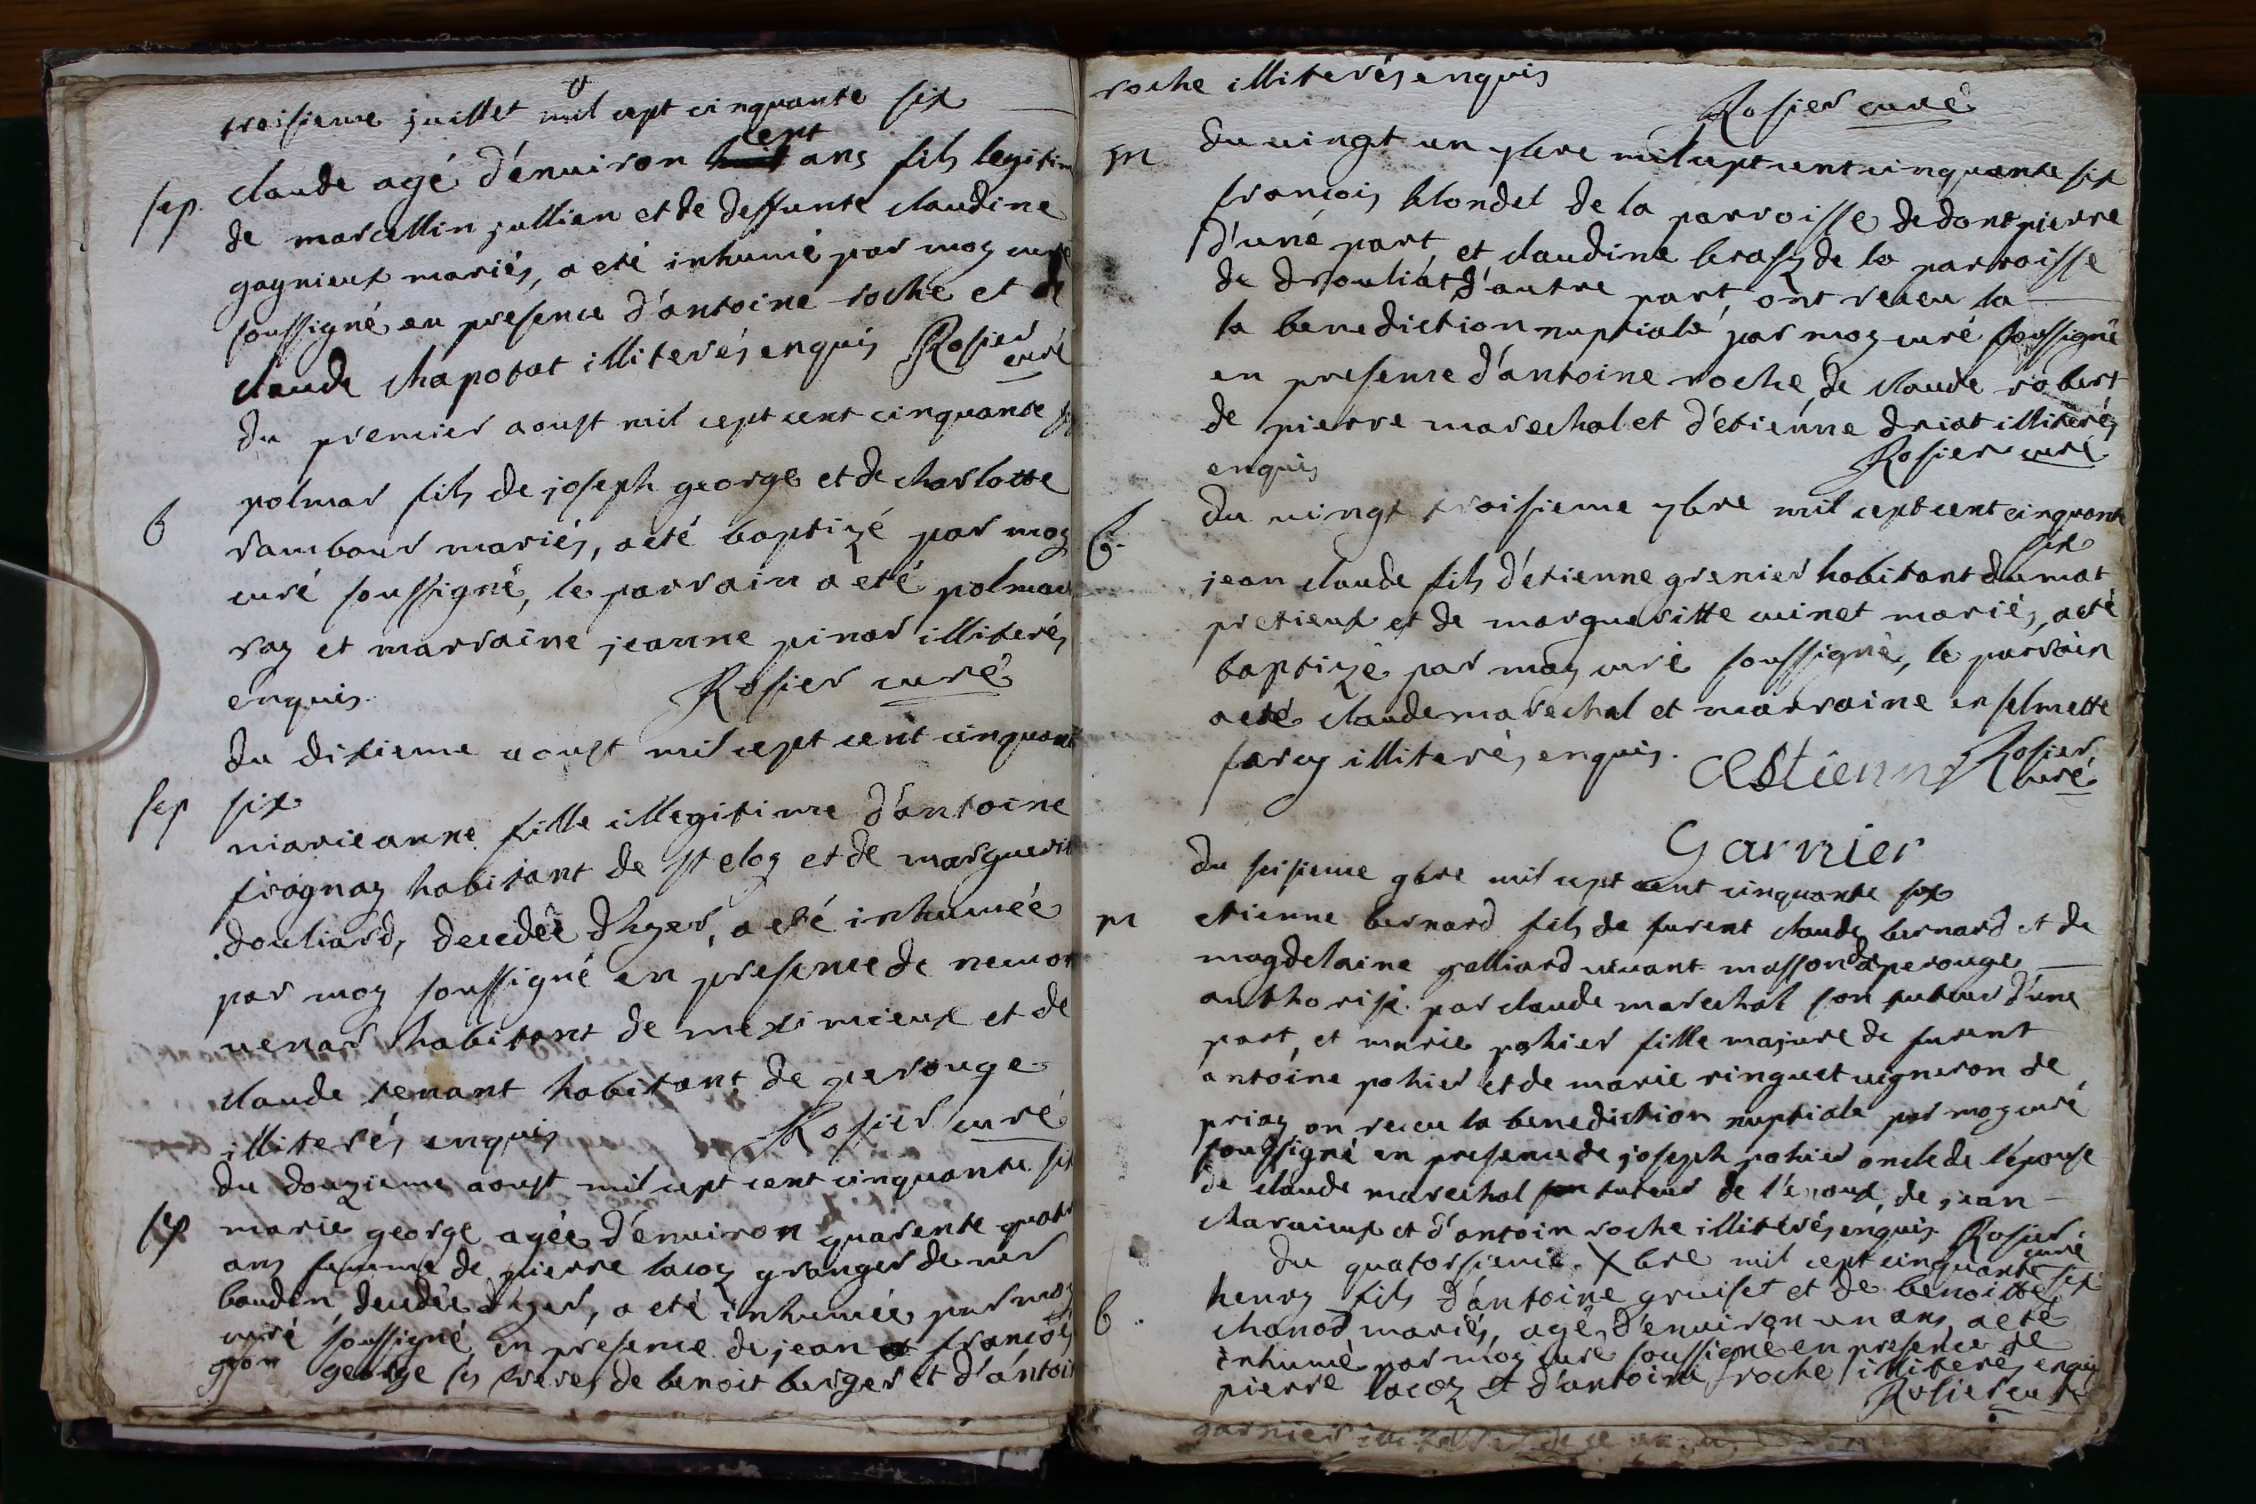 troisieme juillet mil cept cinquante six
sep. claude agé d'enuiron cept ans fils legitim
de marcellin jullien et de deffunte claudine
gagnieux mariés, a eté inhumé par moy curé
soussigné en presence d'antoine roche et de
claude chapotat illiterés enquis Rosier
curé
du premier aoust mil cept cent cinquante
polmar fils de joseph george et de charlotte
b rambour mariés, a eté baptizé par moy
curé soussigné, le parrain a eté polmar
ray et marraine jeanne pinar illiterés
enquis. Rosier curé
du dixieme aoust mil cept cent cinquant
sep six
marieanne fille illegitime d'antoine
frognay habitant de st eloy et de marguerit
douliard, decedée d'hyer, a eté inhumée
par moy soussigné en presence de
venar habitant de meximieux et de
claude tenant habitant de perouge
illiterés enquis Rosier curé
du douzieme aoust mil cept cent cinquante six
sep marie george agée d'enuiron quarente quatr
ans femme de pierre lacoy granger de
boudin, decedée d'hyer, a eté inhumée par moy
curé soussigné en presence de jean françois
george ses freres de benoit berger et d'antoin
roche illiterés enquis
Rosier curé
m du vingt un 7bre mil cept cent cinquante six
françois blondel de la parroisse de dont pierre
d'une part, et claudine de la parroisse
de drouliat d'autre part, ont receu la
la benediction nuptiale par moy curé soussigné
en presence d'antoine roche, de claude robert
de pierre marechal et d'etiénne driat illiterés
enquis Rosier curé
du vingt troisieme 7bre mil cept cent cinquante
six
b. jean claude fils d'etienne grenier habitant du mat
pretieux et de margueritte cuinet mariés, a eté
baptizé par moy curé soussigné, le parrain
a eté claude marechal et marraine enselmette
farcy illiterés, enquis. Estienne Rosier
curé
Garnier
du sisieme 9bre mil cept cent cinquante six
m etienne bernard fils de furent claude bernard et de
magdelaine galliard vivant masson de perouge
authorisé par claude marechal son tuteur d'une
part, et marie pohier fille majure de furent
antoine pohier et de marie ringuet vigneron de
priay on receu la benediction nuptiale par moy curé
soussigné en presence de joseph pohier oncle de l'epouse
de claude marechal tuteur de l'epoux, de jean
charvieux et d'antoin roche illiterés enquis Rosier
curé
du quatorsieme Xbre mil cept cinquante
six
b. henry fils d'antoine gruiset et de benoitte
chanod mariés, agé d'enuiron un ans a eté
inhumé par moy curé soussigné en presence de
pierre lacoy et d'antoine roche illiterés enquis
Rosier curé
garnier